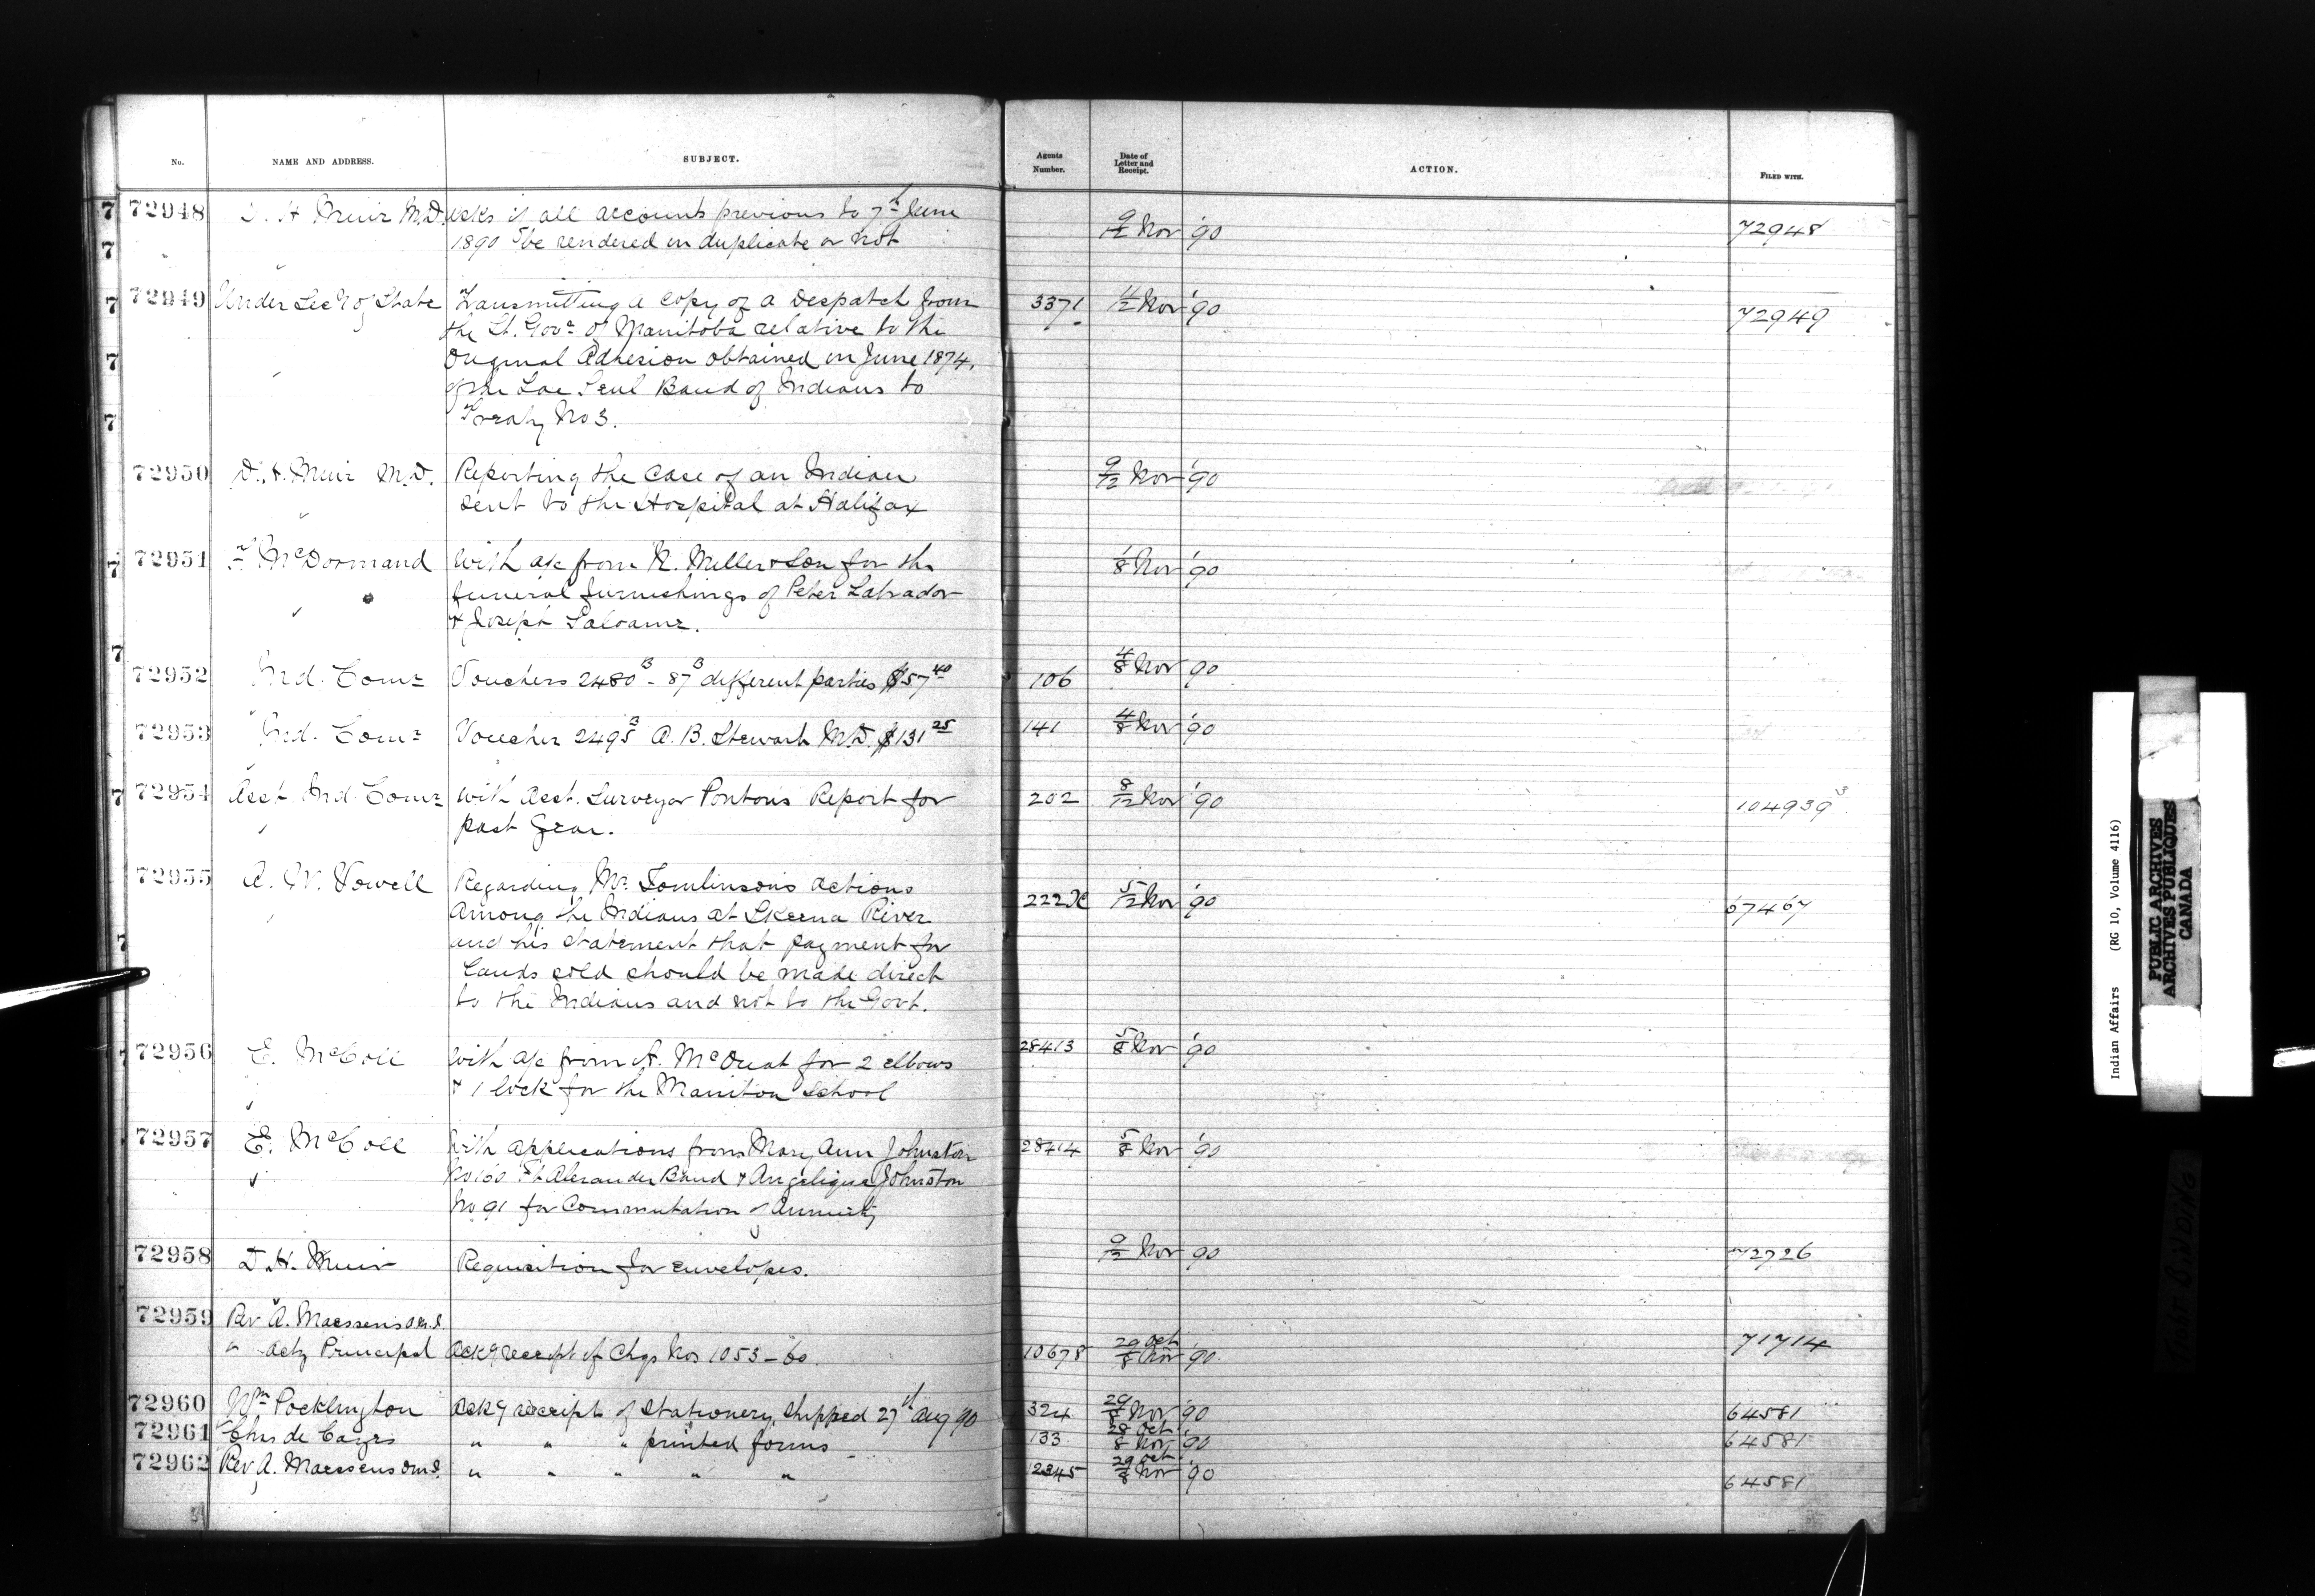 No. NAME AND ADDRESS. SUBJECT. Agents Number. Date of Letter and Receipt. ACTION. FILED WITH.
72948 D. H. Muir M.D. Asks if all accounts previous to 7th June 9/12 Nov '90 72948
1890 to be rendered in duplicate or not
72949 Under Secy of State Transmitting a copy of a Despatch from 3371 11/12 Nov '90 72949
the Lt. Govr of Manitoba relative to the
Original Adhesion obtained in June 1874,
of the Lac Seul Band of Indians to
Treaty No 3.
72950 D. H. Muir M.D. Reporting the case of an Indian 9/12 Nov '90
sent to the Hospital at Halifax
72951 F. McDormand With a/c from N. Miller & Son for the 1/8 Nov '90
funeral furnishings of Peter Labrador
& Joseph
72952 Ind. Comr Vouchers 2480 B - 87 B different parties $57 40 106 4/8 Nov 90
72953 Ind. Comr Voucher 2495 B A. B. Stewart M.D. $131 25 141 4/8 Nov '90
72954 Asst Ind. Comr With Asst. Surveyor Ponton's Report for 202 8/12 Nov '90 104939 3
past Year.
72955 A. W. Vowell Regarding Mr. Tomlinson's actions 222 5/12 Nov '90 67467
among the Indians at Skeena River
and his statement that payment for
Lands sold should be made direct
to the Indians and not to the Govt.
72956 E. McColl With a/c from A. McQuat for 2 elbows 28413 5/8 Nov '90
& 1 lock for the Manitou School
72957 E. McColl With applications from Mary Ann Johnston 28414 5/8 Nov '90
No 160 Ft Alexander Band & Angelique Johnston
No 91 for Commutation of Annuity
72958 D. H. Muir Requisition for envelopes. 9/12 Nov 90 72726
72959 Rev A. Maessens O.M.I.
" Actg Principal Ackg receipt of Chqs Nos 1053-60. 10678 29 Oct/8 Nov '90. 71714
72960 Wm Pocklington Ackg receipt of Stationery, Shipped 27th Aug '90 324 29/8 Nov '90 64581
72961 Chas de Cazes " " " printed forms 133 28 Oct/8 Nov '90 64581
72962 Rev A. Maessens OMI. " " " " " 12345 29 Oct/8 Nov '90 64581
Indian Affairs (RG 10, Volume 4116)
PUBLIC ARCHIVES
ARCHIVES PUBLIQUES
CANADA